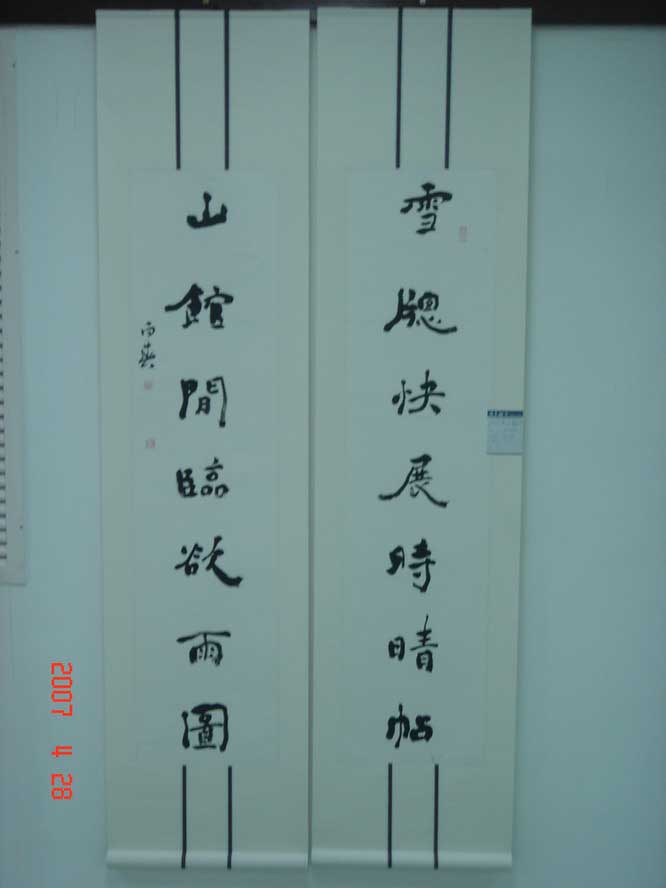 雪牕快展時晴帖
山館閒臨欲雨圖
2007 4 28